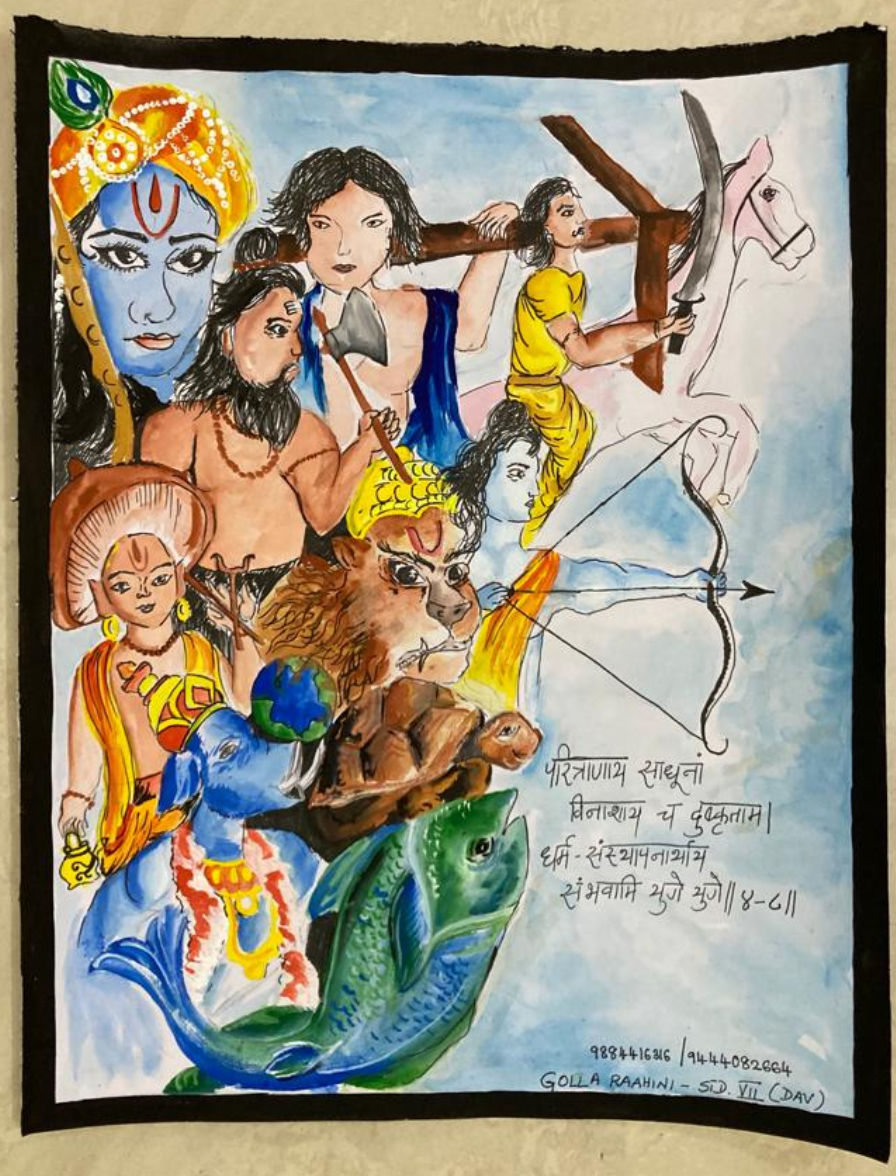 परित्राणाय साधूनां
विनाशाय च दुष्कृताम।
धर्म-संस्थापनार्थाय
संभवामि युगे युगे॥ ४-८॥
9884416316 / 9444082664
GOLLA RAAHINI - STD. VII (DAV)